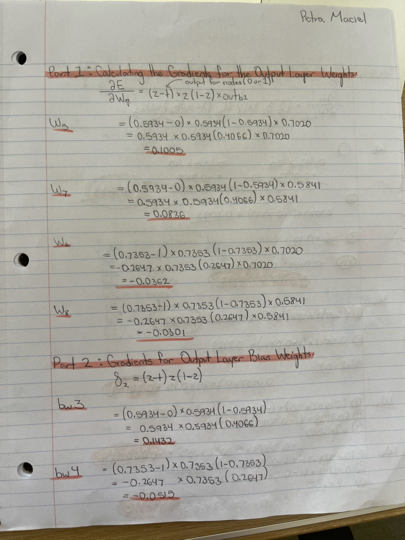 Petra Maciel
Part 1: Calculating the Gradients for the Output Layer Weights
output for nodes (0 or 1)
∂E/∂W9 = (z-t) × z(1-z) × outb2
= (0.5934-0) × 0.5934(1-0.5934) × 0.7020
= 0.5934 × 0.5934(0.4066) × 0.7020
= 0.1005
W7 = (0.5934-0) × 0.5934(1-0.5934) × 0.5841
= 0.5934 × 0.5934(0.4066) × 0.5841
= 0.0836
= (0.7353-1) × 0.7353(1-0.7353) × 0.7020
= -0.2647 × 0.7353(0.2647) × 0.7020
= -0.0362
W8 = (0.7353-1) × 0.7353(1-0.7353) × 0.5841
= -0.2647 × 0.7353(0.2647) × 0.5841
= -0.0301
Part 2: Gradients for Output Layer Bias Weights
δz = (z-t)z(1-z)
bw3
= (0.5934-0) × 0.5934(1-0.5934)
= 0.5934 × 0.5934(0.4066)
= 0.1432
bw4 = (0.7353-1) × 0.7353(1-0.7353)
= -0.2647 × 0.7353(0.2647)
= -0.0515